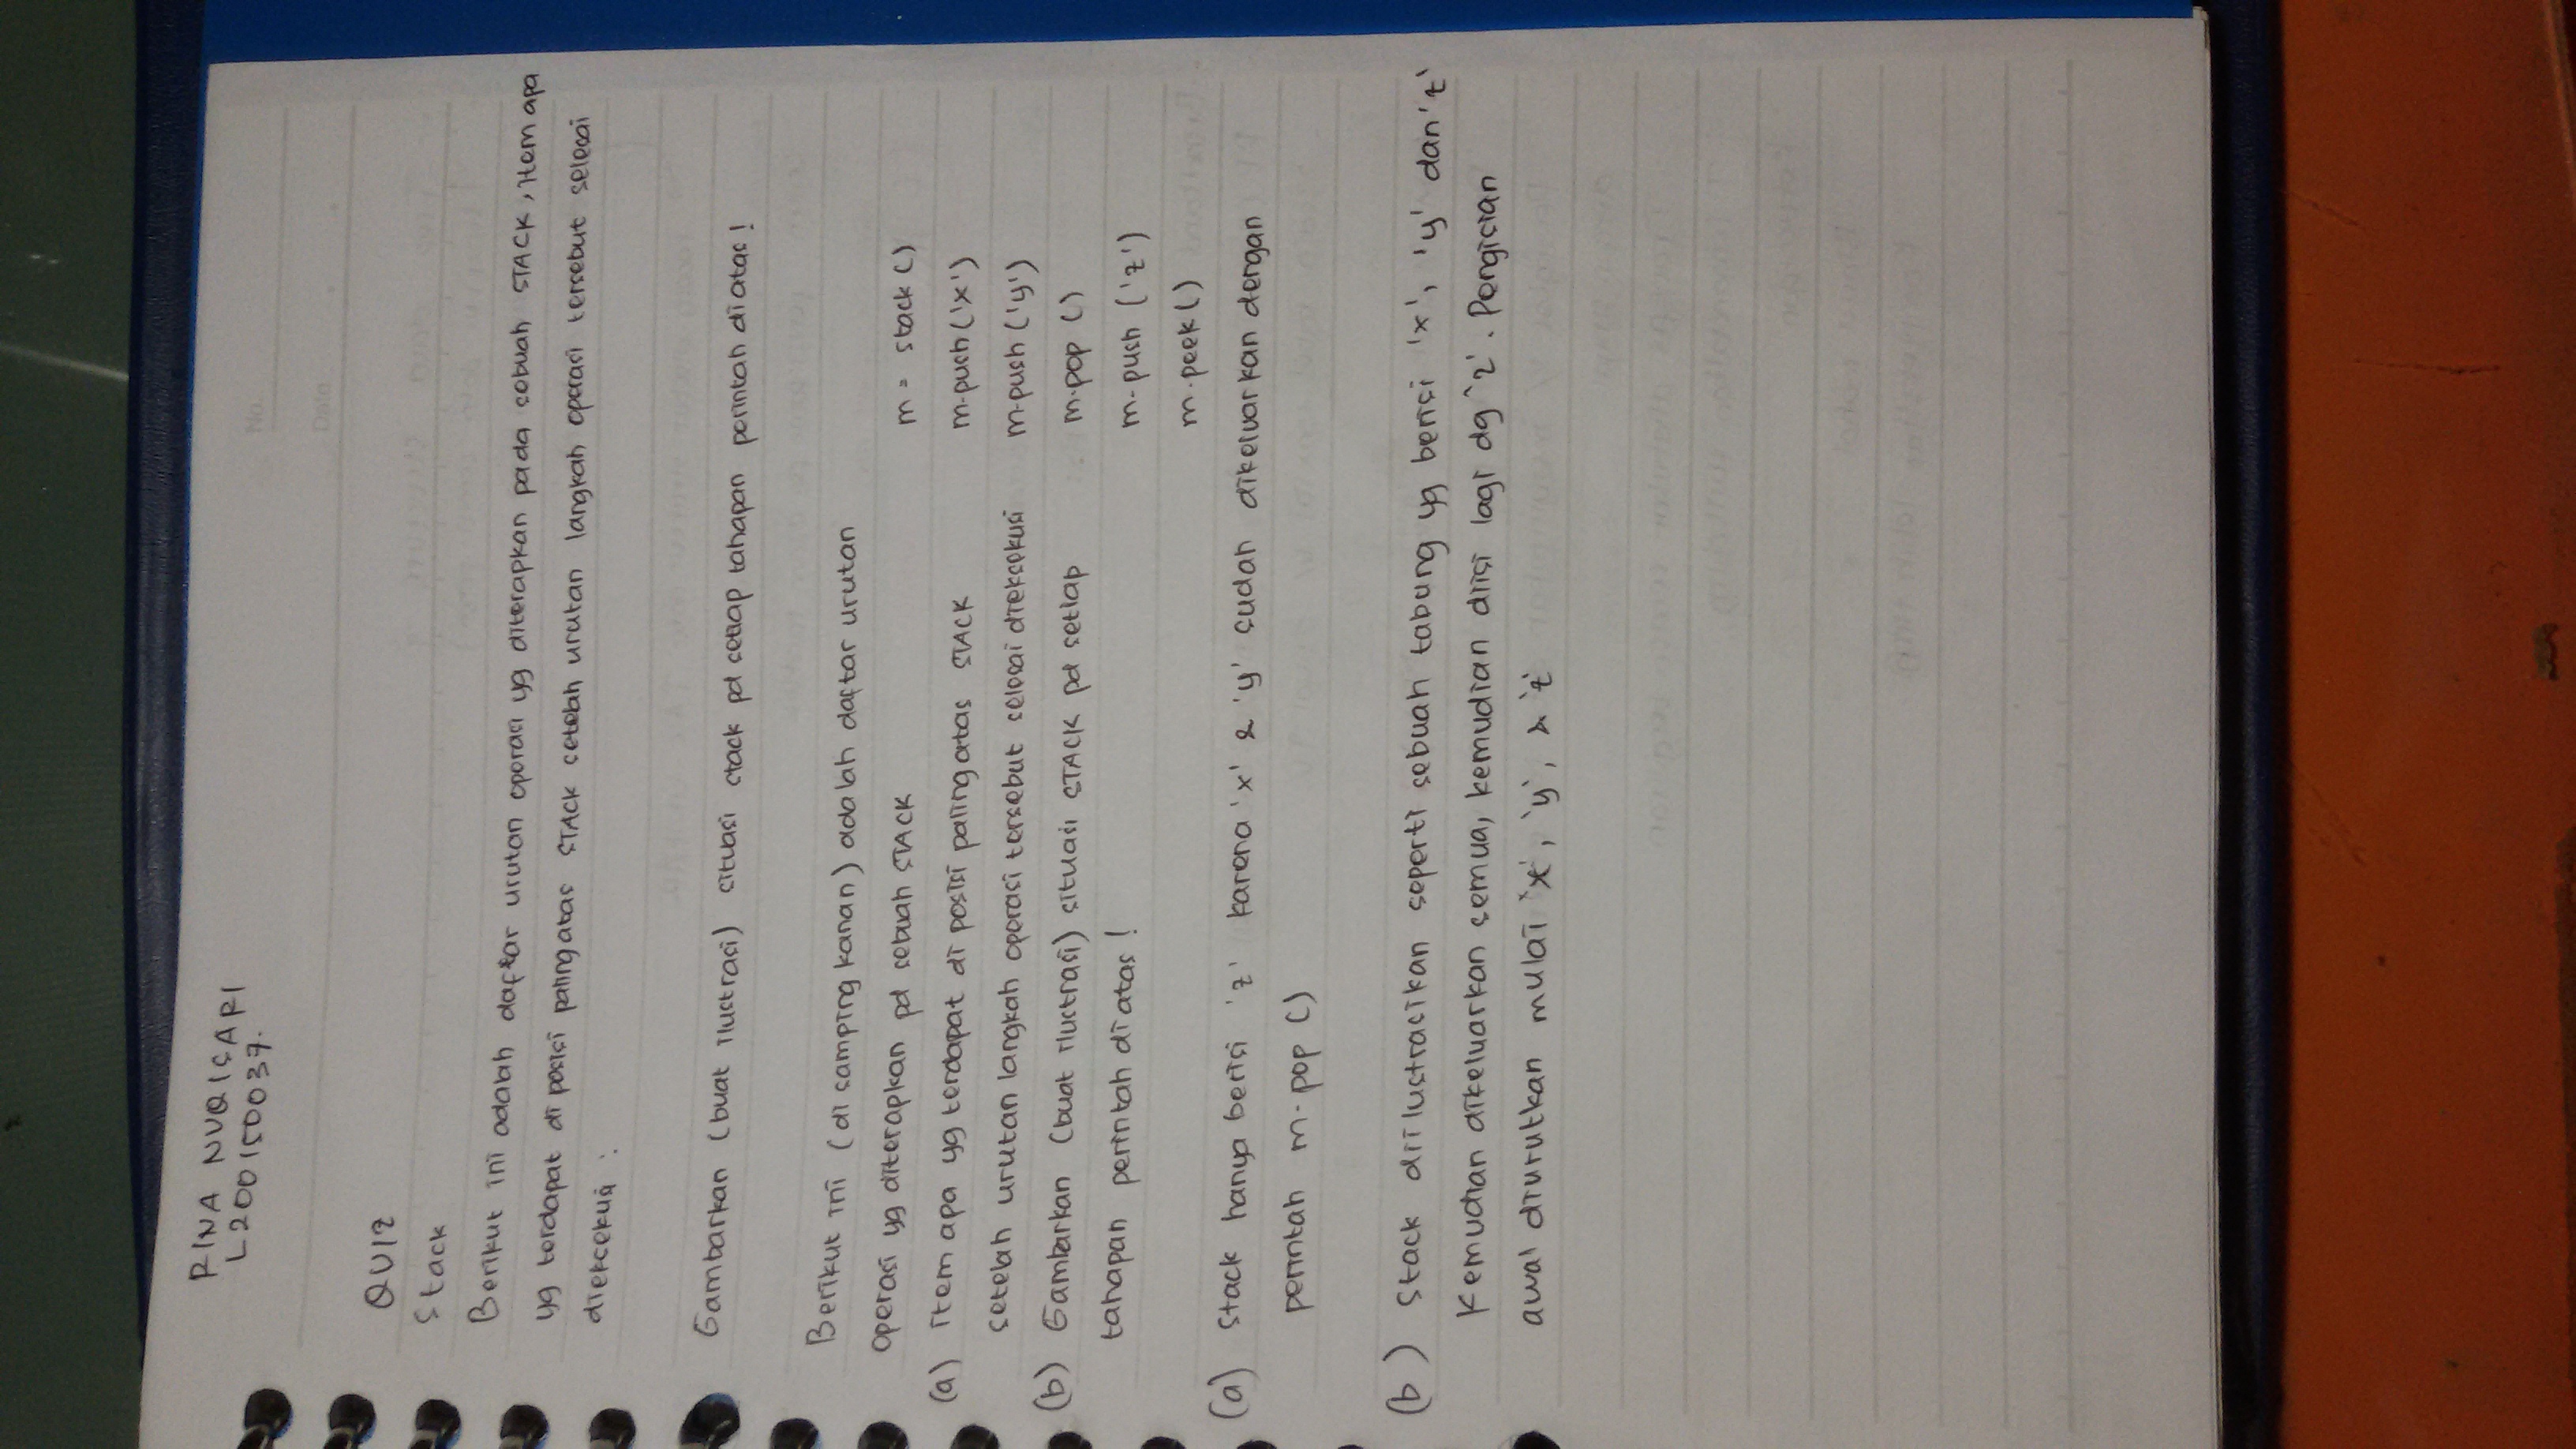 RINA NURISARI
L200150037.
No.
Date
QUIZ
Stack
Berikut ini adalah daftar urutan operasi yg diterapkan pada sebuah STACK, Item apa
yg terdapat di posisi paling atas STACK setelah urutan langkah operasi tersebut selesai
dieksekusi :
Gambarkan (buat ilustrasi) situasi stack pd setiap tahapan perintah di atas !
Berikut ini (di samping kanan) adalah daftar urutan
operasi yg diterapkan pd sebuah STACK
m = stack ()
(a) item apa yg terdapat di posisi paling atas STACK
m.push ('x')
setelah urutan langkah operasi tersebut selesai dieksekusi
m.push ('y')
(b) Gambarkan (buat ilustrasi) situasi STACK pd setiap
m.pop ()
tahapan perintah di atas !
m.push ('z')
m.peek ()
(a) Stack hanya berisi 'z' karena 'x' & 'y' sudah dikeluarkan dengan
perintah m.pop ()
(b) Stack diilustrasikan seperti sebuah tabung yg berisi 'x', 'y' dan 'z'
Kemudian dikeluarkan semua, kemudian diisi lagi dg 'z'. Pengisian
awal diurutkan mulai 'x', 'y', & 'z'